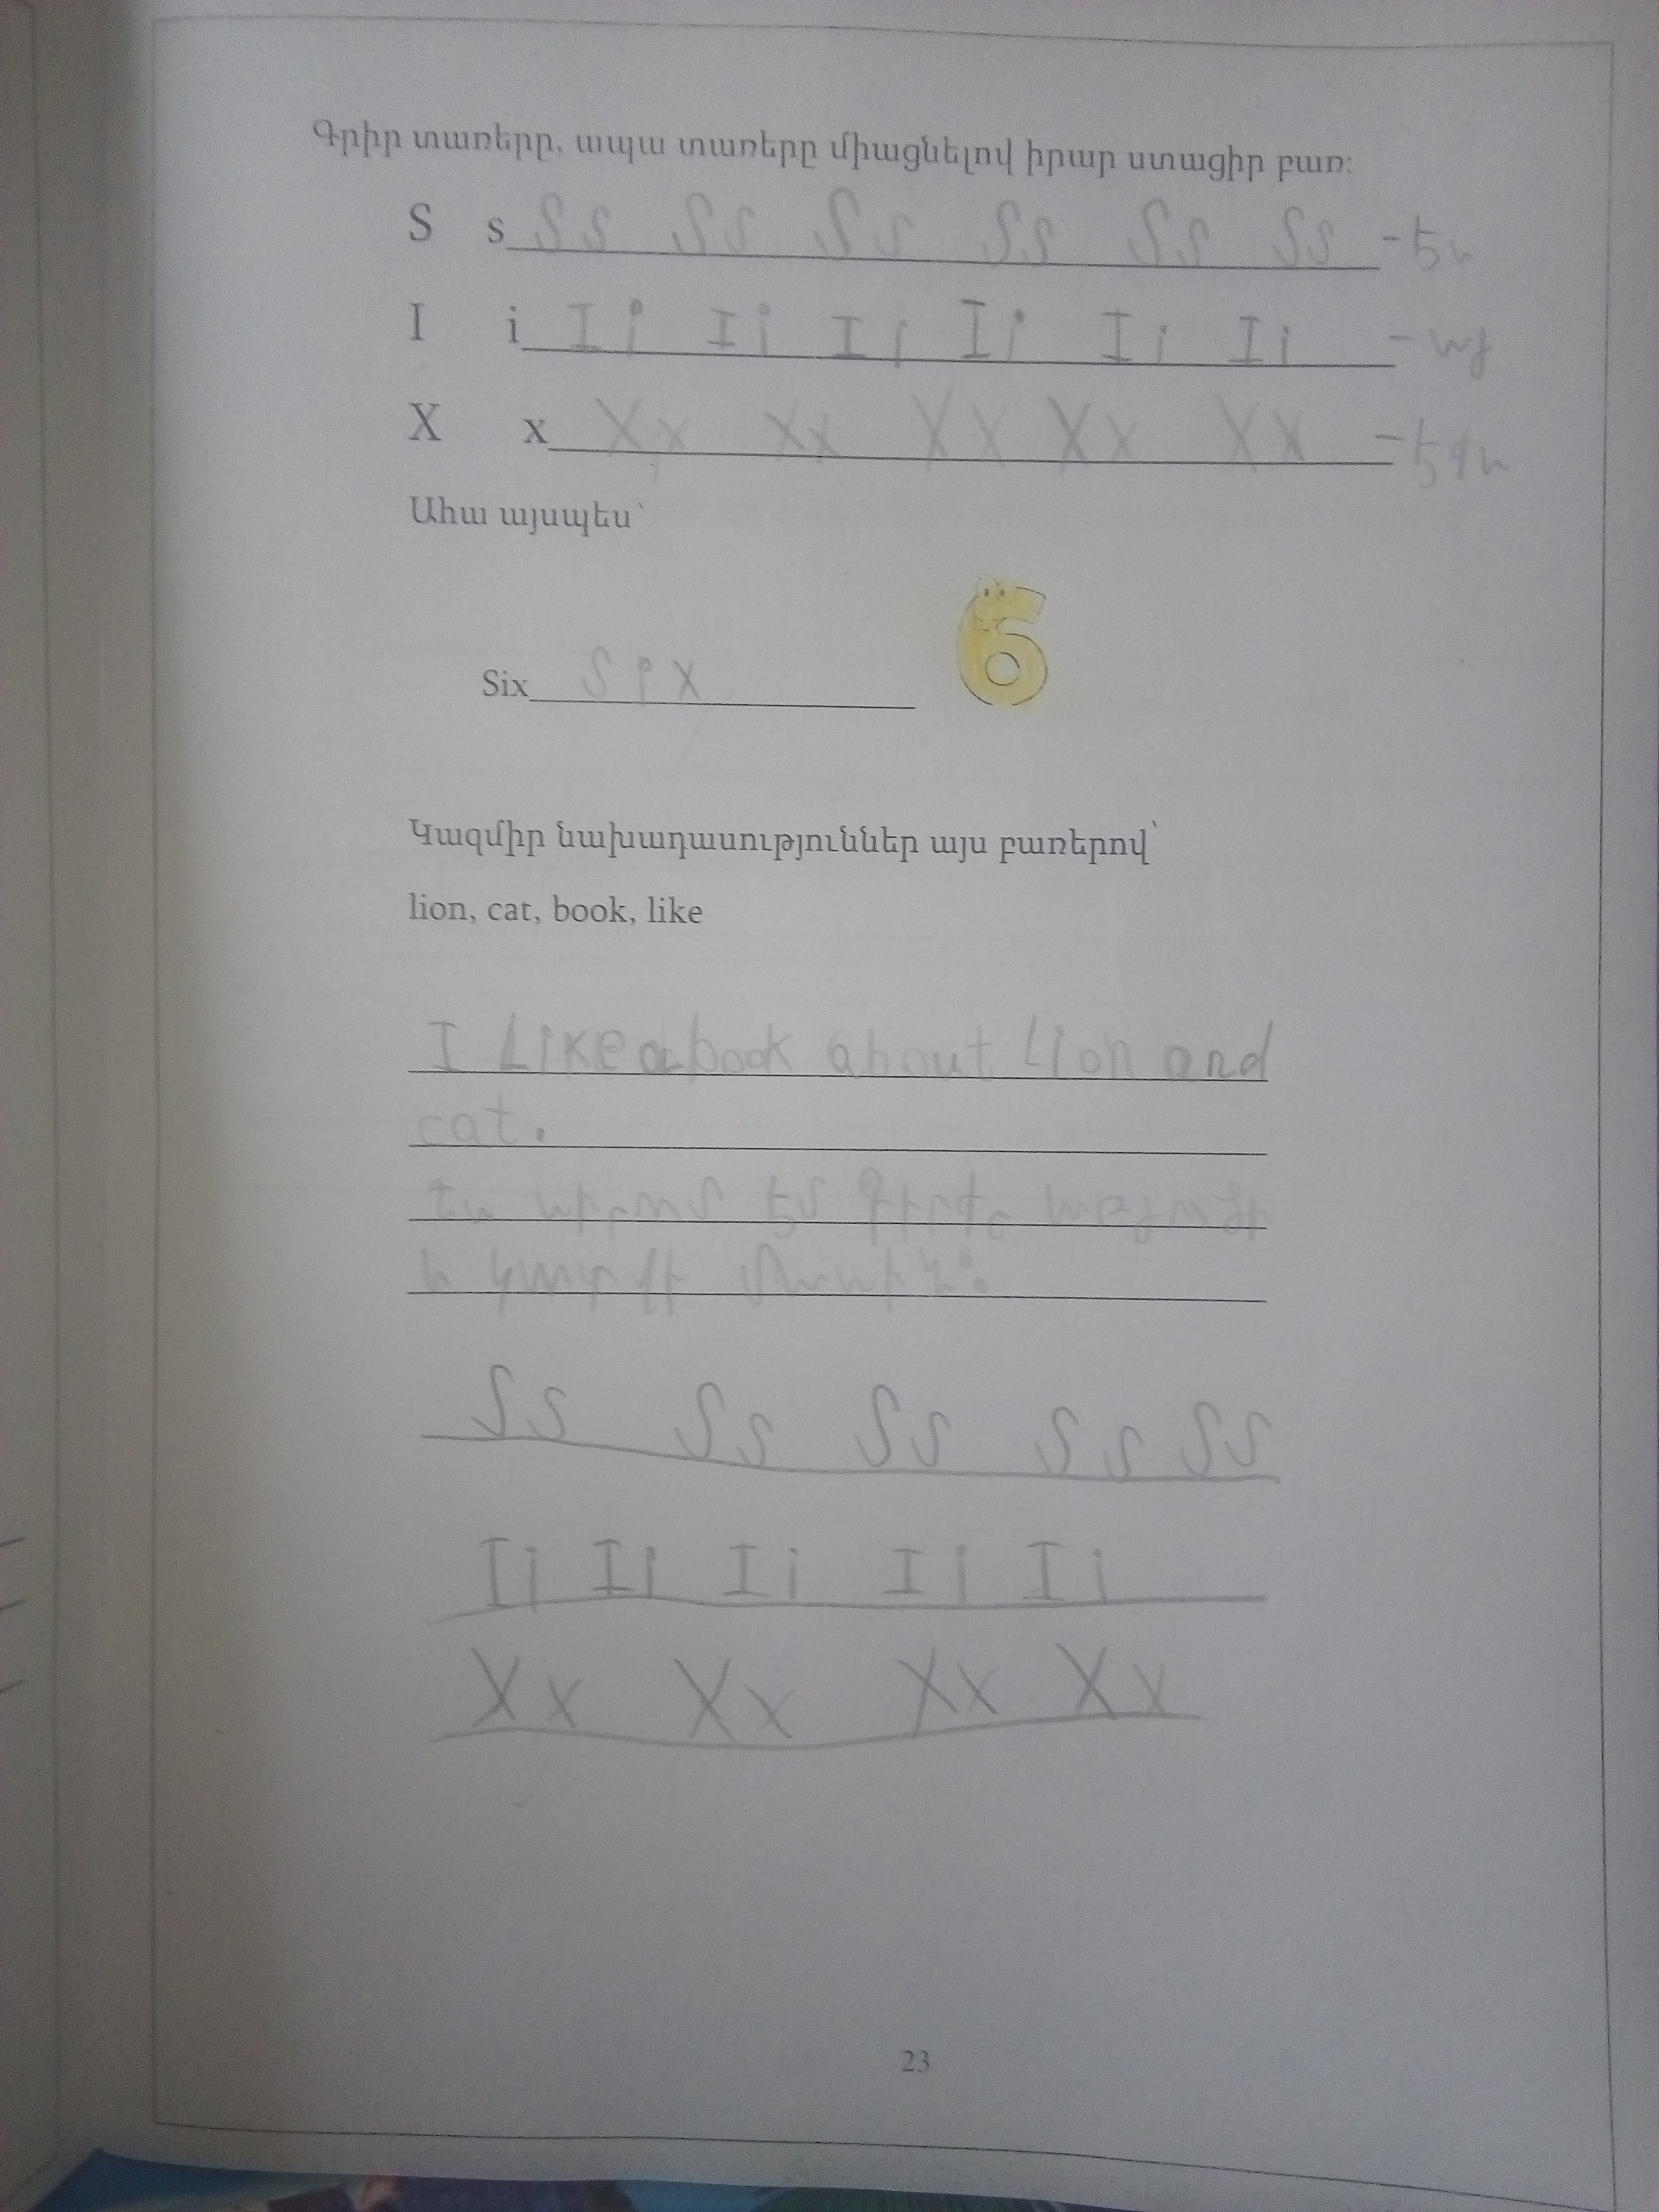 Գրիր տառերը, ապա տառերը միացնելով իրար ստացիր բառ:
S s Ss Ss Ss Ss Ss Ss - էս
I i Ii Ii Ii Ii Ii Ii - այ
X x Xx Xx Xx Xx Xx - էքս
Ահա այսպես՝
6
Six six
Կազմիր նախադասություններ այս բառերով՝
lion, cat, book, like
I Like a book about Lion and
cat.
Ես սիրում եմ գիրքը առյուծի
և կատվի մասին:
Ss Ss Ss Ss Ss
Ii Ii Ii Ii Ii
Xx Xx Xx Xx
23